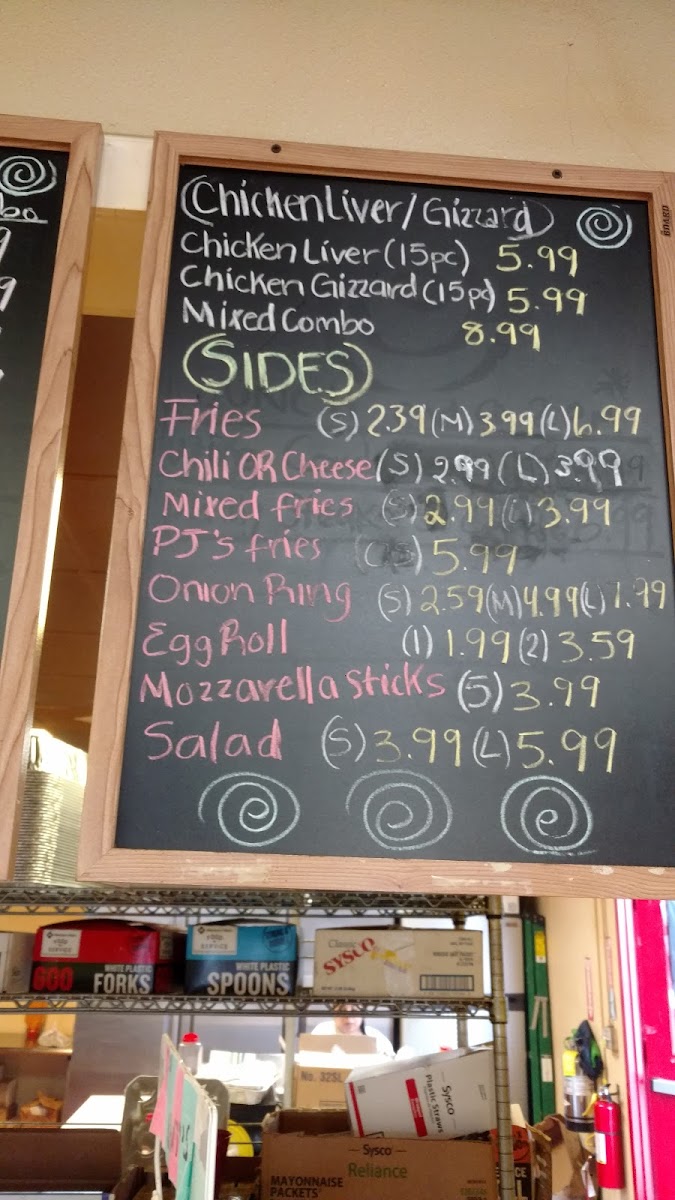 (Chicken Liver/Gizzard)
Chicken Liver (15pc) 5.99
Chicken Gizzard (15pc) 5.99
Mixed Combo 8.99
(SIDES)
Fries (S) 2.39 (M) 3.99 (L) 6.99
Chili OR Cheese (S) 2.99 (L) 3.99
Mixed fries (S) 2.99 (L) 3.99
PJ's fries 5.99
Onion Ring (S) 2.59 (M) 4.99 (L) 7.99
Egg Roll (1) 1.99 (2) 3.59
Mozzarella sticks (5) 3.99
Salad (S) 3.99 (L) 5.99
BOARD
600 WHITE PLASTIC FORKS
WHITE PLASTIC SPOONS
Classic SYSCO
No. 32SL
Sysco
Plastic Straws
Sysco
Reliance
MAYONNAISE
PACKETS